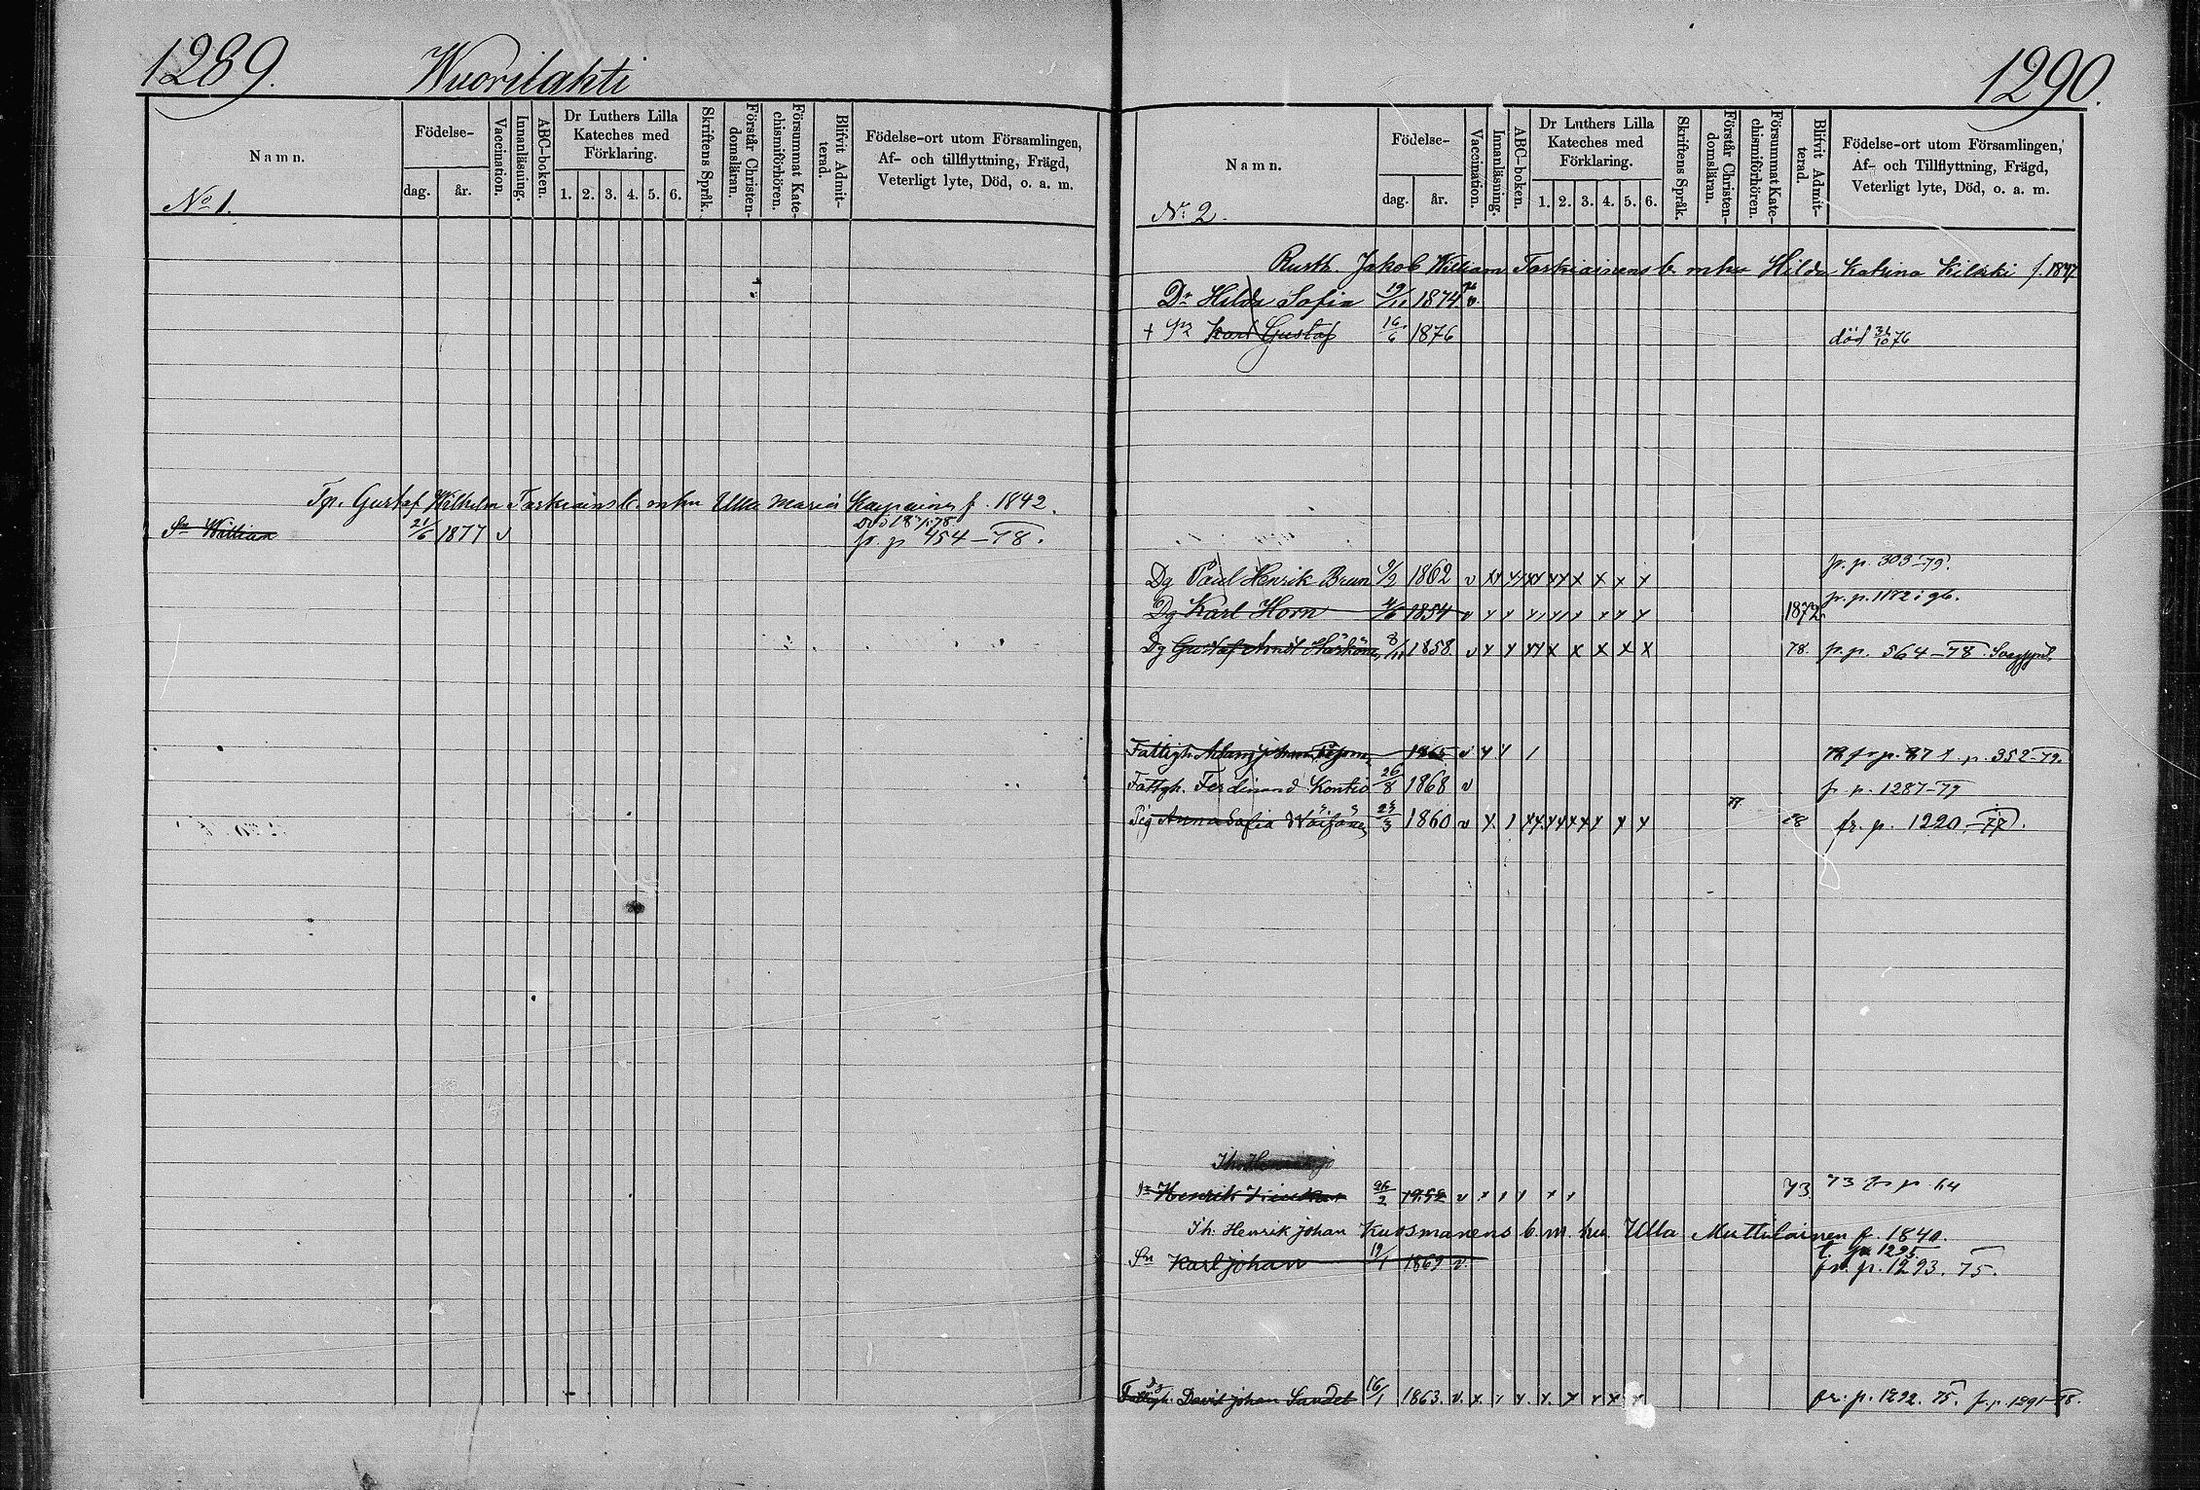 1289. Wuorilahti
Namn.
Födelse-
dag. år.
Vaccination.
Innanläsning.
ABC-boken.
Dr Luthers Lilla Kateches med Förklaring.
1. 2. 3. 4. 5. 6.
Skriftens Språk.
Förstår Christendomsläran.
Försummat Katechismiförhören.
Blifvit Admitterad.
Födelse-ort utom Församlingen,
Af- och tillflyttning, Frägd,
Veterligt lyte, Död, o. a. m.
No 1.
Gustaf Wilhelm Taskiains b. m hu Ulla Maria f. 1842.
Sn William 21/6 1877 v
fr. p 454-78.
1290.
Namn.
Födelse-
dag. år.
Vaccination.
Innanläsning.
ABC-boken.
Dr Luthers Lilla Kateches med Förklaring.
1. 2. 3. 4. 5. 6.
Skriftens Språk.
Förstår Christendomsläran.
Försummat Katechismiförhören.
Blifvit Admitterad.
Födelse-ort utom Församlingen,
Af- och Tillflyttning, Frägd,
Veterligt lyte, Död, o. a. m.
N: 2.
Rusth. Jakob William Taskiainens b. m hu Hilda Katrina f. 1847
Dr Hilda Sofia 19/11 1874 v
+ Sn Karl Gustaf 16/6 1876 död 76
Dg Paul Henrik Brun 1862 v x x x x fr. p. 303-79.
Dg Karl Horn 1854 v 1872 fr. p. 1172
Dg Gustaf 8/11 1858 v 78. p. p. 564-78.
Fattigh. Adam Johan 1865 v p. 352-79.
Fattgh. Ferdinand Kontio 26/8 1868 v fr p. 1287-79
Pig Anna Sofia 1860 v fr. p. 1220-77.
Henrik 26/2 v 73. 73 fr p 64
Ih. Henrik Johan Kuosmanens b. m. hu. Ulla Muttilainen f. 1840.
t. p. 1295
Sn Karl Johan 19/1 1869 v. fr. p. 1293. 75.
Fattigh. David Johan Sandel 16/1 1863. v. x. fr. p. 1292. 75. f. p. 1291-78.